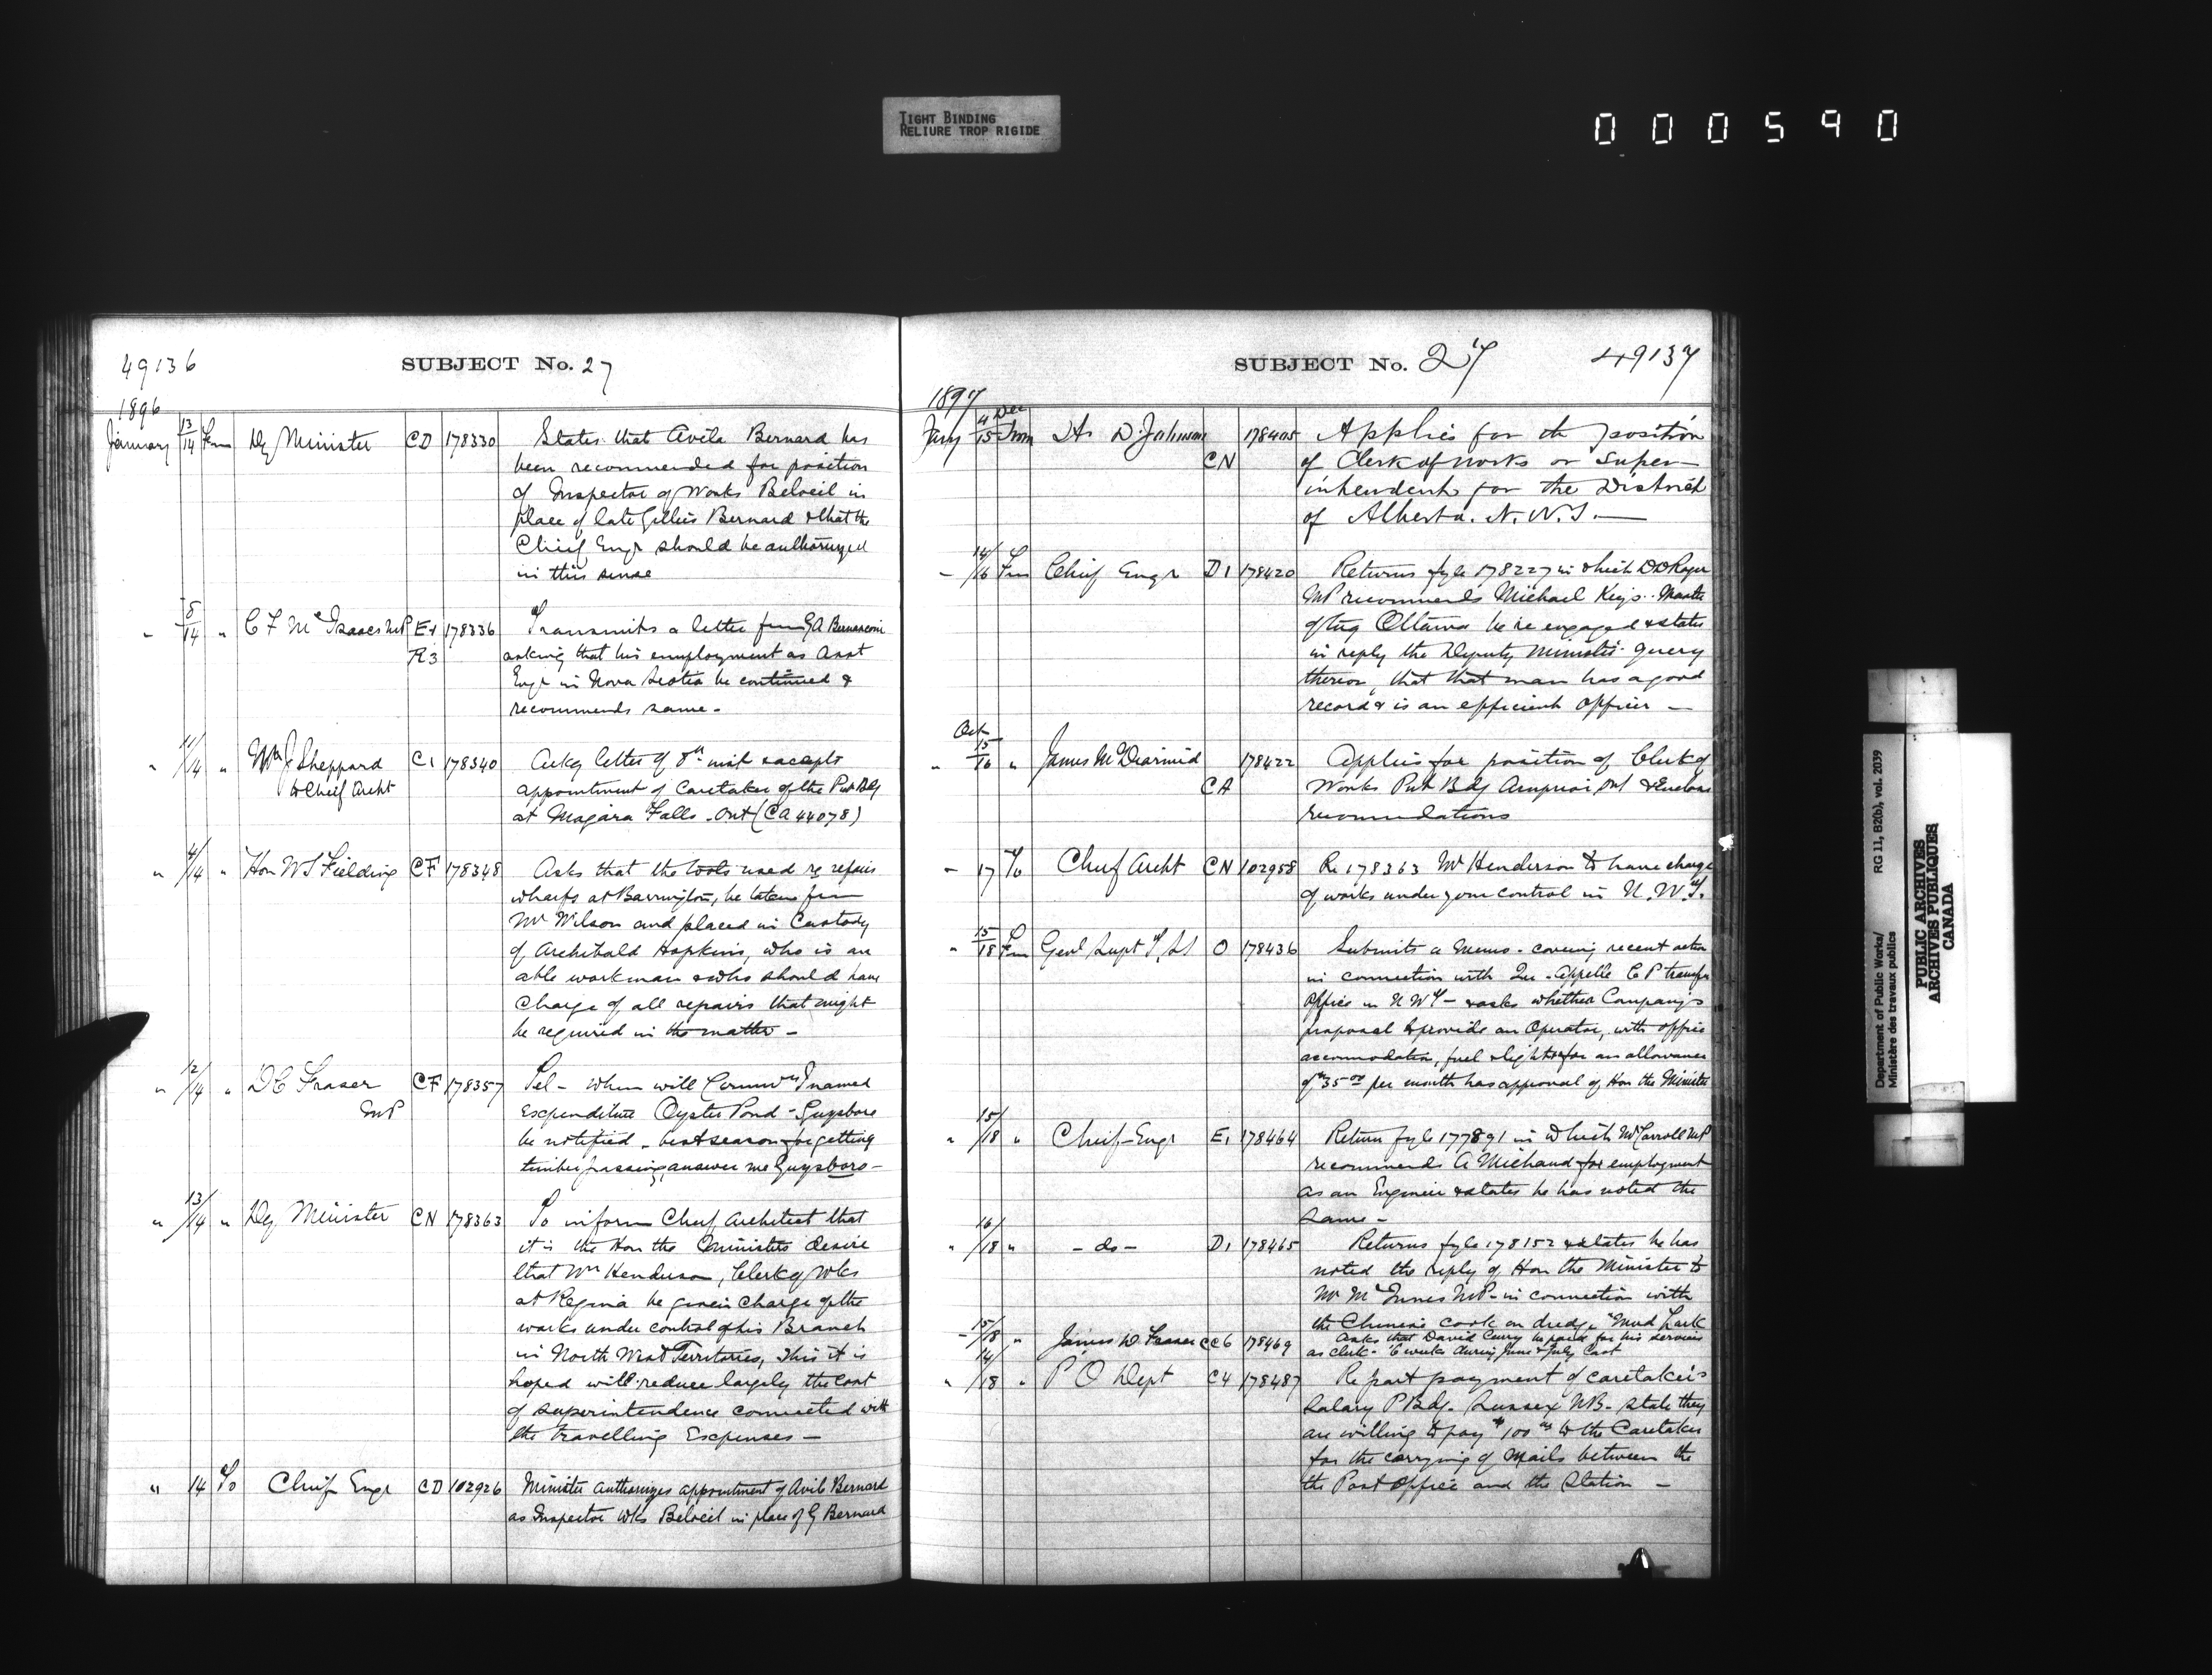 TIGHT BINDING
RELIURE TROP RIGIDE
000590
49136
SUBJECT No. 27
1896
January 13/14 Fm Dy Minister CD 178330 States that Avila Bernard has
been recommended for position
of Inspector of Works Beloeil in
place of late Gillies Bernard & that the
Chief Engr should be authorized
in this sense
" 8/14 " C F McIsaac MP E1 178336 Transmits a letter from G A Bernasconi
R3 asking that his employment as Asst
Engr in Nova Scotia be continued &
recommends same -
" 11/14 " Wm J Sheppard C1 178340 Ackg letter of 8th inst accepts
to Cheif Archt appointment of Caretaker of the Pub Bdg
at Niagara Falls - Ont (CA 44078)
" 4/14 " Hon W S Fielding CF 178348 Asks that the tools used re repairs
wharfs at Barrington, be taken from
Mr Wilson and placed in Custody
of Archibald Hopkins, who is an
able workman & who should have
Charge of all repairs that might
be required in the matter -
" 12/14 " D C Fraser CF 178357 Tel - When will named
MP Expenditure Oyster Pond - Guysboro
be notified - best season for getting
timber passing, answer me Guysboro -
" 13/14 " Dy. Minister CN 178363 To inform Chief Architect that
it is the Hon the Ministers desire
that Wm Henderson, Clerk of Wks
at Regina be given Charge of the
works under control of his Branch
in North West Territories, This it is
hoped will reduce largely the cost
of superintendence connected with
the travelling Expenses -
" 14 To Chief Engr CD 102926 Minister authorizes appointment of Avila Bernard
as Inspector Wks Beloeil in place of G Bernard
SUBJECT No. 27 49137
1897
Jany 4 Dec/15 Fm H. D. Johnson 178405 Applies for the position
CN of Clerk of works or Super-
intendent for the District
of Alberta. N. W. T. -
- 14/16 Fm Chief Engr D1 178420 Returns fyle 178227 in which
MP recommends Michael Keys. Master
of tug Ottawa be re engaged & states
in reply the Deputy Minister query
thereon, that that man has a good
record & is an efficient officer -
Oct
" 15/16 " James McDiarmid 178422 Applies for position of Clerk of
CA Works Pub Bdg Arnprior Ont & Encloses
recommendations
- 17 To Chief Archt CN 102958 Re 178363 Mr Henderson to have charge
of works under your control in N. W. T.
" 15/18 Fm Genl Supt T. Ls O 178436 Submits a Memo - covering recent action
in connection with Qu-Appelle C P transfer
Office in N W T - & asks whether Company's
proposal to provide an Operator, with office
accommodation, fuel & light for an allowance
of $35.00 per month has approval of Hon the Minister
" 15/18 " Cheif Engr E1 178464 Return fyle 177891 in which Mr Carroll MP
recommends A Michaud for employment
as an Engineer & states he has noted the
same -
" 16/18 " - do - D1 178465 Returns fyle 178152 & states he has
noted the reply of Hon the Minister to
Mr McInnes MP - in connection with
the Chinese cook on dredge "Mud Lark
- 15/18 " James D. Fraser CC6 178469 Asks that David Curry be paid for his services
as clerk - 6 weeks during June & July last
" 14/18 " P O Dept C4 178487 Re part payment of caretaker's
Salary P Bdg. Sussex NB - state they
are willing to pay $100.00 to the Caretaker
for the carrying of Mails between the
the Post Office and the Station -
Department of Public Works/
Ministère des travaux publics
RG 11, B2(b), vol. 2039
PUBLIC ARCHIVES
ARCHIVES PUBLIQUES
CANADA